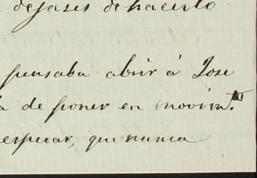 dejases de hacerlo
pensaba abrir á Jose
a de poner en movim.to
esperar, que nunca